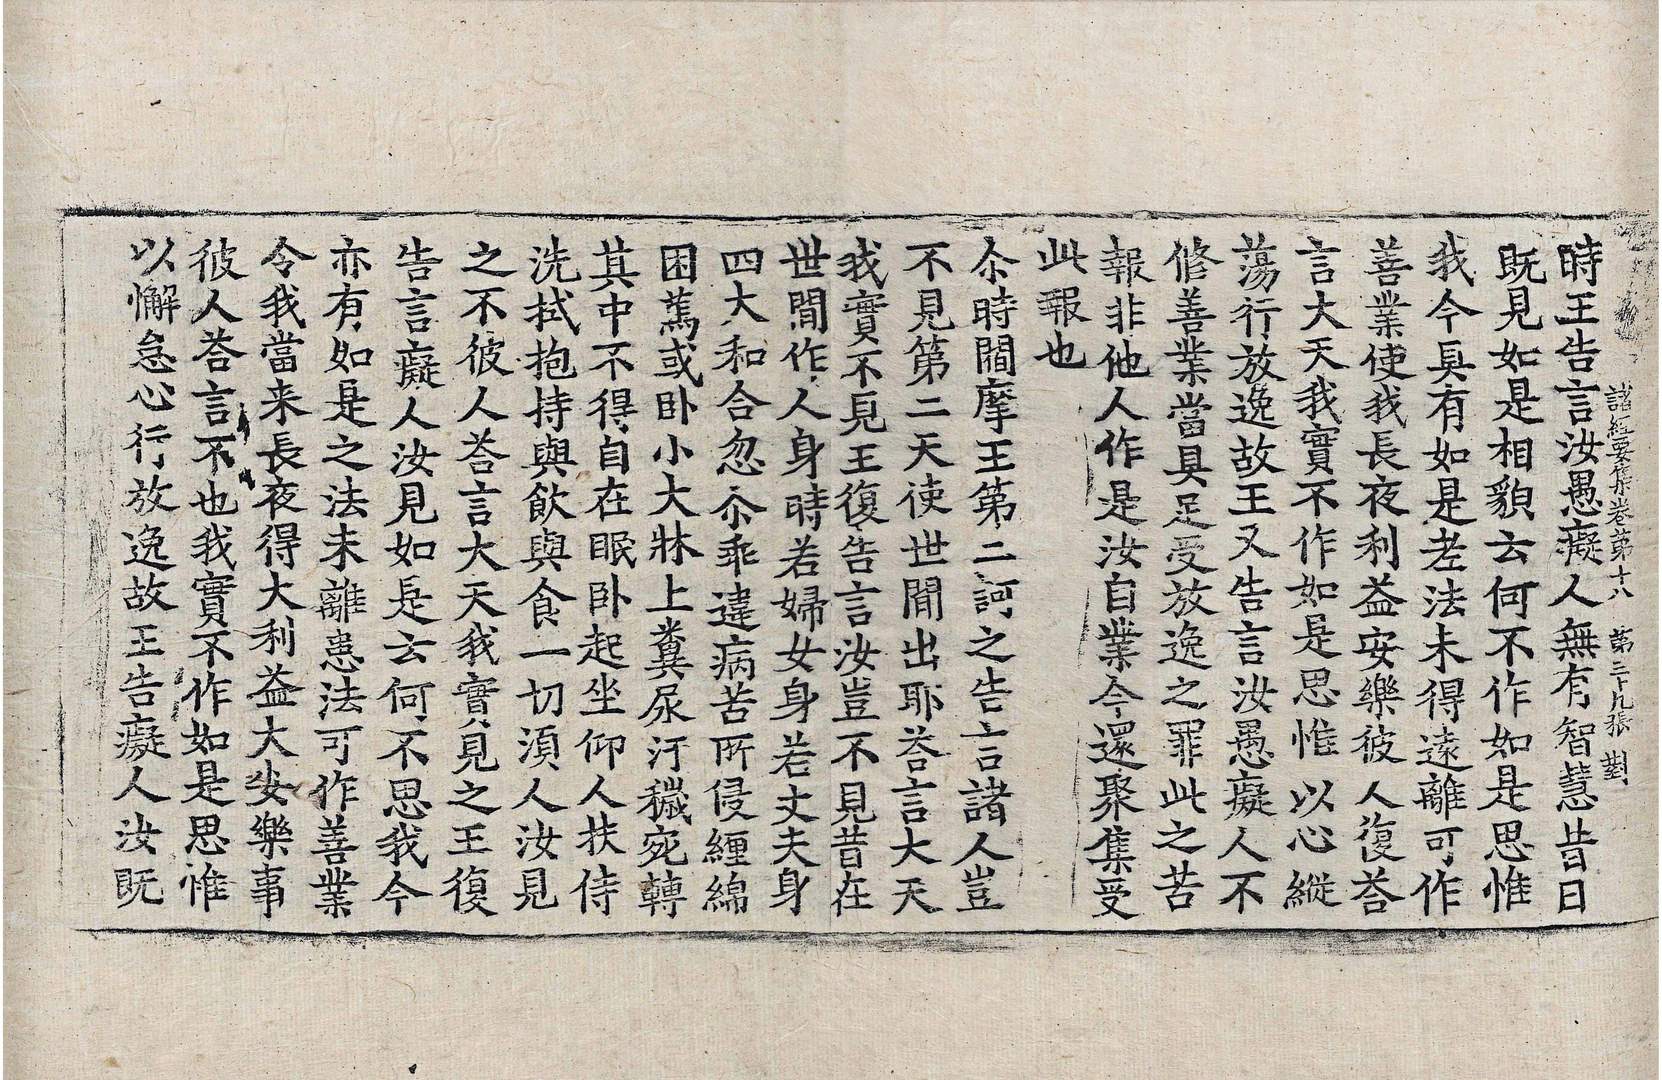 諸經要集卷第十八 第二十九張 對
時王告言汝愚癡人無有智慧昔日
既見如是相貌云何不作如是思惟
我今具有如是老法未得遠離可作
善業使我長夜利益安樂彼人復荅
言大天我實不作如是思惟以心縱
蕩行放逸故王又告言汝愚癡人不
修善業當具足受放逸之罪此之苦
報非他人作是汝自業今還聚集受
此報也
尒時閻摩王第二訶之告言諸人豈
不見第二天使世間出耶荅言大天
我實不見王復告言汝豈不見昔在
世間作人身時若婦女身若丈夫身
四大和合忽尒乖違病苦所侵纏綿
困篤或卧小大牀上糞尿汙穢宛轉
其中不得自在眠卧起坐仰人扶侍
洗拭抱持與飲與食一切須人汝見
之不彼人荅言大天我實見之王復
告言癡人汝見如是云何不思我今
亦有如是之法未離患法可作善業
令我當来長夜得大利益大安樂事
彼人荅言不也我實不作如是思惟
以懈怠心行放逸故王告癡人汝既